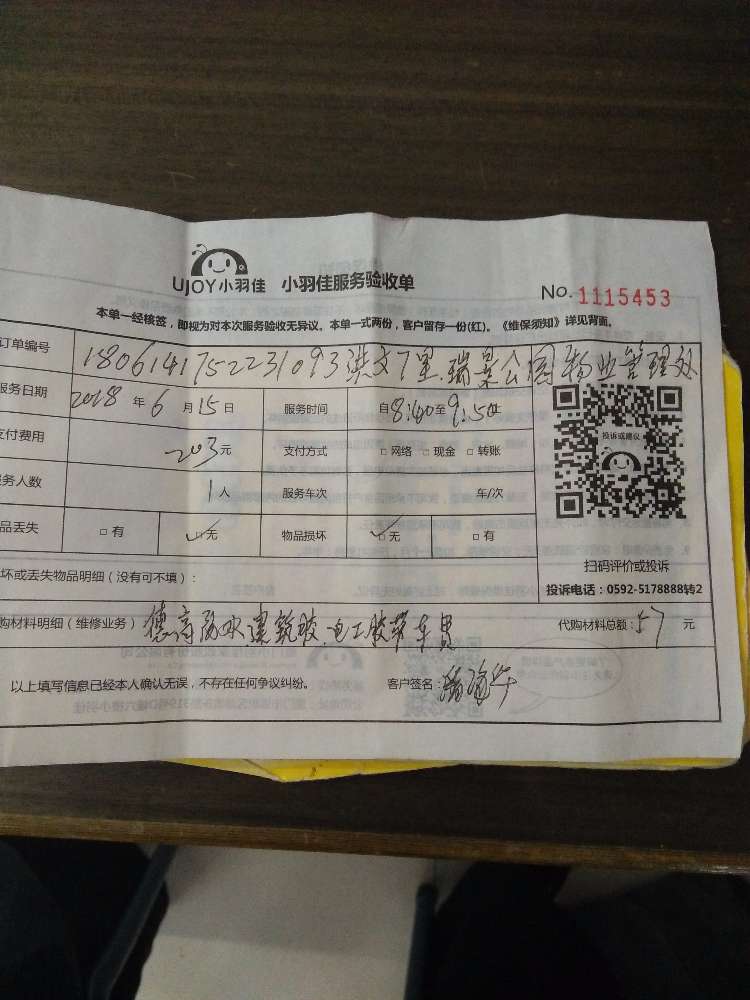 UJOY小羽佳 小羽佳服务验收单 No. 1115453
本单一经核签，即视为对本次服务验收无异议。本单一式两份，客户留存一份(红)。《维保须知》详见背面。
订单编号 1806141752231093洪文7里.瑞景公园物业管理处
服务日期 2018 年 6 月 15 日 服务时间 自8:40至9:50止
支付费用 203元 支付方式 □网络 □现金 □转账
务人数 1人 服务车次 车/次
品丢失 □有 ☑无 物品损坏 ☑无 □有
投诉或建议
扫码评价或投诉
坏或丢失物品明细（没有可不填）： 投诉电话：0592-5178888转2
购材料明细（维修业务） 德高防水.建筑胶.电工胶带车费 代购材料总额：57 元
以上填写信息已经本人确认无误，不存在任何争议纠纷。 客户签名：